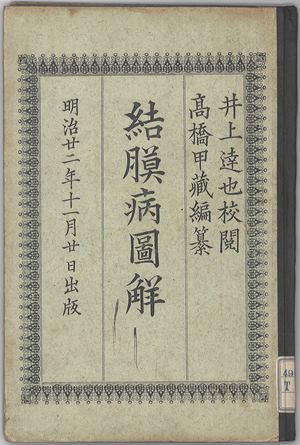 井上達也校閲
髙橋甲藏編纂
結膜病圖解
明治廿二年十一月廿日出版
49
T